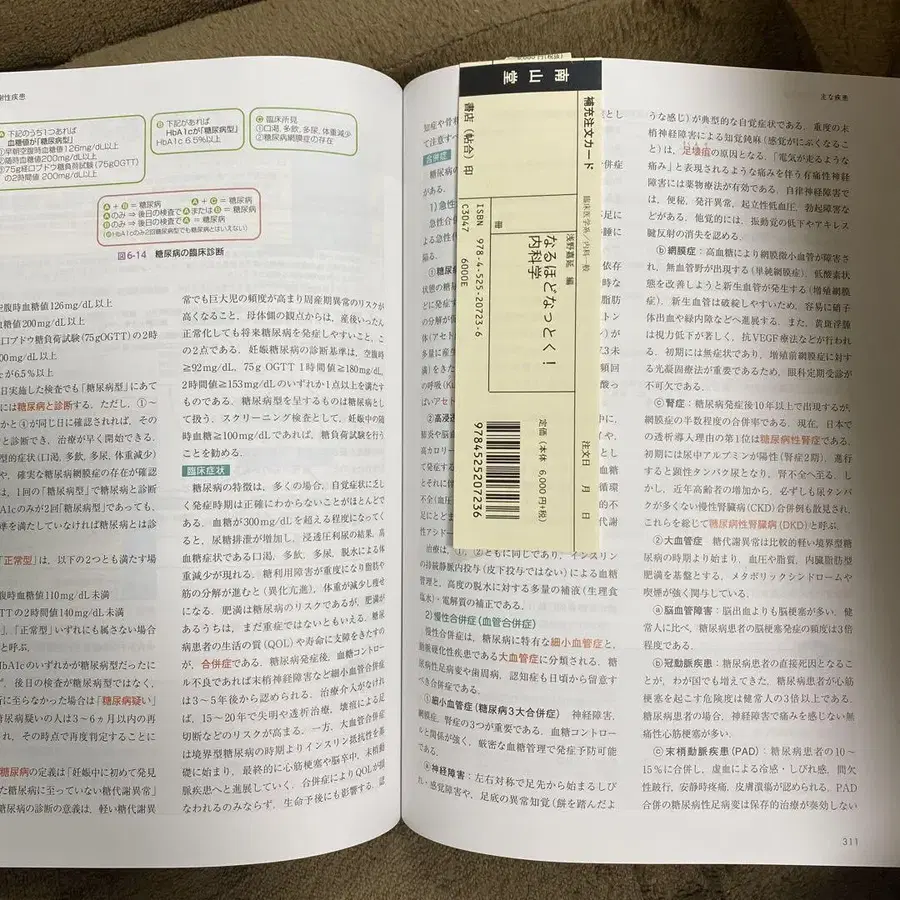 謝性疾患
A 下記のうち1つあれば
血糖値が「糖尿病型」
①早朝空腹時血糖値126mg/dL以上
②随時血糖値200mg/dL以上
③75g経口ブドウ糖負荷試験(75gOGTT)
の2時間値 200mg/dL以上
B 下記があれば
HbA1cが「糖尿病型」
HbA1c 6.5%以上
C 臨床所見
①口渇,多飲,多尿,体重減少
②糖尿病網膜症の存在
A + B = 糖尿病 A + C = 糖尿病
Aのみ ⇒ 後日の検査で AまたはB = 糖尿病
Bのみ ⇒ 後日の検査で A = 糖尿病
図6-14 糖尿病の臨床診断
空腹時血糖値126mg/dL以上
血糖値200mg/dL以上
口ブドウ糖負荷試験(75gOGTT)の2時
00mg/dL以上
が6.5%以上
日実施した検査でも「糖尿病型」にあて
には糖尿病と診断する.ただし,①〜
かと④が同じ日に確認されれば,その
と診断でき,治療が早く開始できる.
型的症状(口渇,多飲,多尿,体重減少)
や,確実な糖尿病網膜症の存在が確認
は,1回の「糖尿病型」で糖尿病と診断
A1cのみが2回「糖尿病型」であっても,
準を満たしていなければ糖尿病とは診
「正常型」は,以下の2つとも満たす場
腹時血糖値110mg/dL未満
TTの2時間値140mg/dL未満
」,「正常型」いずれにも属さない場合
と呼ぶ.
HbA1cのいずれかが糖尿病型だったに
ず,後日の検査が糖尿病型ではなく,
断に至らなかった場合は「糖尿病疑い」
糖尿病疑いの人は3〜6ヵ月以内の再
され,その時点で再度判定することに
糖尿病の定義は「妊娠中に初めて発見
た糖尿病に至っていない糖代謝異常」
糖尿病の診断の意義は,軽い糖代謝異
常でも巨大児の頻度が高まり周産期異常のリスクが
高くなること,母体側の観点からは,産後いったん
正常化しても将来糖尿病を発症しやすいこと,こ
の2点である.妊娠糖尿病の診断基準は,空腹時
≧92mg/dL,75g OGTT 1時間値≧180mg/dL,
2時間値≧153mg/dLのいずれか1点以上を満たす
ものである.糖尿病型を呈するものは糖尿病とし
て扱う.スクリーニング検査として,妊娠中の随
時血糖≧100mg/dLであれば,糖負荷試験を行う
ことを勧める.
臨床症状
糖尿病の特徴は,多くの場合,自覚症状に乏し
く発症時期は正確にわからないことがほとんどで
ある.血糖が300mg/dLを超える程度になってく
ると,尿糖排泄が増加し,浸透圧利尿の結果,高
血糖症状である口渇,多飲,多尿,脱水による体
重減少が現れる.糖利用障害が重度になり脂肪や
筋の分解が進むと(異化亢進),体重が減少し痩せ
になる.肥満は糖尿病のリスクであるが,肥満が
あるうちは,まだ重症ではないともいえる.糖尿
病患者の生活の質(QOL)や寿命に支障をきたすの
が,合併症である.糖尿病発症後,血糖コントロー
ル不良であれば末梢神経障害など細小血管合併症
は3〜5年後から認められる.治療介入がなけれ
ば,15〜20年で失明や透析治療,壊疽による足
切断などのリスクが高まる.一方,大血管合併症
は境界型糖尿病の時期よりインスリン抵抗性を基
礎に始まり,最終的に心筋梗塞や脳卒中,末梢動
脈疾患へと進展していく.合併症によりQOLが損
なわれるのみならず,生命予後にも影響する.認
南山堂
補充注文カード
書店(帖合)印
臨床医学系/内科一般
冊
浅野嘉延 編
なるほどなっとく!
内科学
ISBN 978-4-525-20723-6
C3047 6000E
定価(本体 6,000円+税)
注文日 月 日
9784525207236
合併症
治療は,①,②ともに同じであり,インスリン
の持続静脈内投与(皮下投与ではない)による血糖
管理と,高度の脱水に対する多量の補液(生理食
塩水)・電解質の補正である.
2)慢性合併症(血管合併症)
慢性合併症は,糖尿病に特有な細小血管症と,
動脈硬化性疾患である大血管症に分類される.糖
尿病性足病変や歯周病,認知症も日頃から留意す
べき合併症である.
①細小血管症(糖尿病3大合併症) 神経障害,
網膜症,腎症の3つが重要である.血糖コントロー
ルと関係が強く,厳密な血糖管理で発症予防可能
である.
ⓐ神経障害:左右対称で足先から始まるしび
れ・感覚障害や,足底の異常知覚(餅を踏んだよ
主な疾患
うな感じ)が典型的な自覚症状である.重度の末
梢神経障害による知覚鈍麻(感覚がにぶくなるこ
と)は,足壊疽の原因となる.「電気が走るような
痛み」と表現されるような痛みを伴う有痛性神経
障害には薬物療法が有効である.自律神経障害で
は,便秘,発汗異常,起立性低血圧,勃起障害な
どがある.他覚的には,振動覚の低下やアキレス
腱反射の消失を認める.
ⓑ網膜症:高血糖により網膜微小血管が障害さ
れ,無血管野が出現する(単純網膜症).低酸素状
態を改善しようと新生血管が発生する(増殖網膜
症).新生血管は破綻しやすいため,容易に硝子
体出血や緑内障などへ進展する.また,黄斑浮腫
は視力低下が著しく,抗VEGF療法などが行われ
る.初期には無症状であり,増殖前網膜症に対す
る光凝固療法が重要であるため,眼科定期受診が
不可欠である.
ⓒ腎症:糖尿病発症後10年以上で出現するが,
網膜症の半数程度の合併率である.現在,日本で
の透析導入理由の第1位は糖尿病性腎症である.
初期には尿中アルブミンが陽性(腎症2期),進行
すると顕性タンパク尿となり,腎不全へ至る.し
かし,近年高齢者の増加から,必ずしも尿タンパ
クが多くない慢性腎臓病(CKD)合併例も散見され,
これらを総じて糖尿病性腎臓病(DKD)と呼ぶ.
②大血管症 糖代謝異常は比較的軽い境界型糖
尿病の時期より始まり,血圧や脂質,内臓脂肪型
肥満を基盤とする,メタボリックシンドロームや
喫煙が強く関与している.
ⓐ脳血管障害:脳出血よりも脳梗塞が多い.健
常人に比べ,糖尿病患者の脳梗塞発症の頻度は3倍
程度である.
ⓑ冠動脈疾患:糖尿病患者の直接死因となるこ
とが,わが国でも増えてきた.糖尿病患者が心筋
梗塞を起こす危険度は健常人の3倍以上である.
糖尿病患者の場合,神経障害で痛みを感じない無
痛性心筋梗塞が多い.
ⓒ末梢動脈疾患(PAD):糖尿病患者の10〜
15%に合併し,虚血による冷感・しびれ感,間欠
性跛行,安静時疼痛,皮膚潰瘍が認められる.PAD
合併の糖尿病性足病変は保存的治療が奏効しない
311